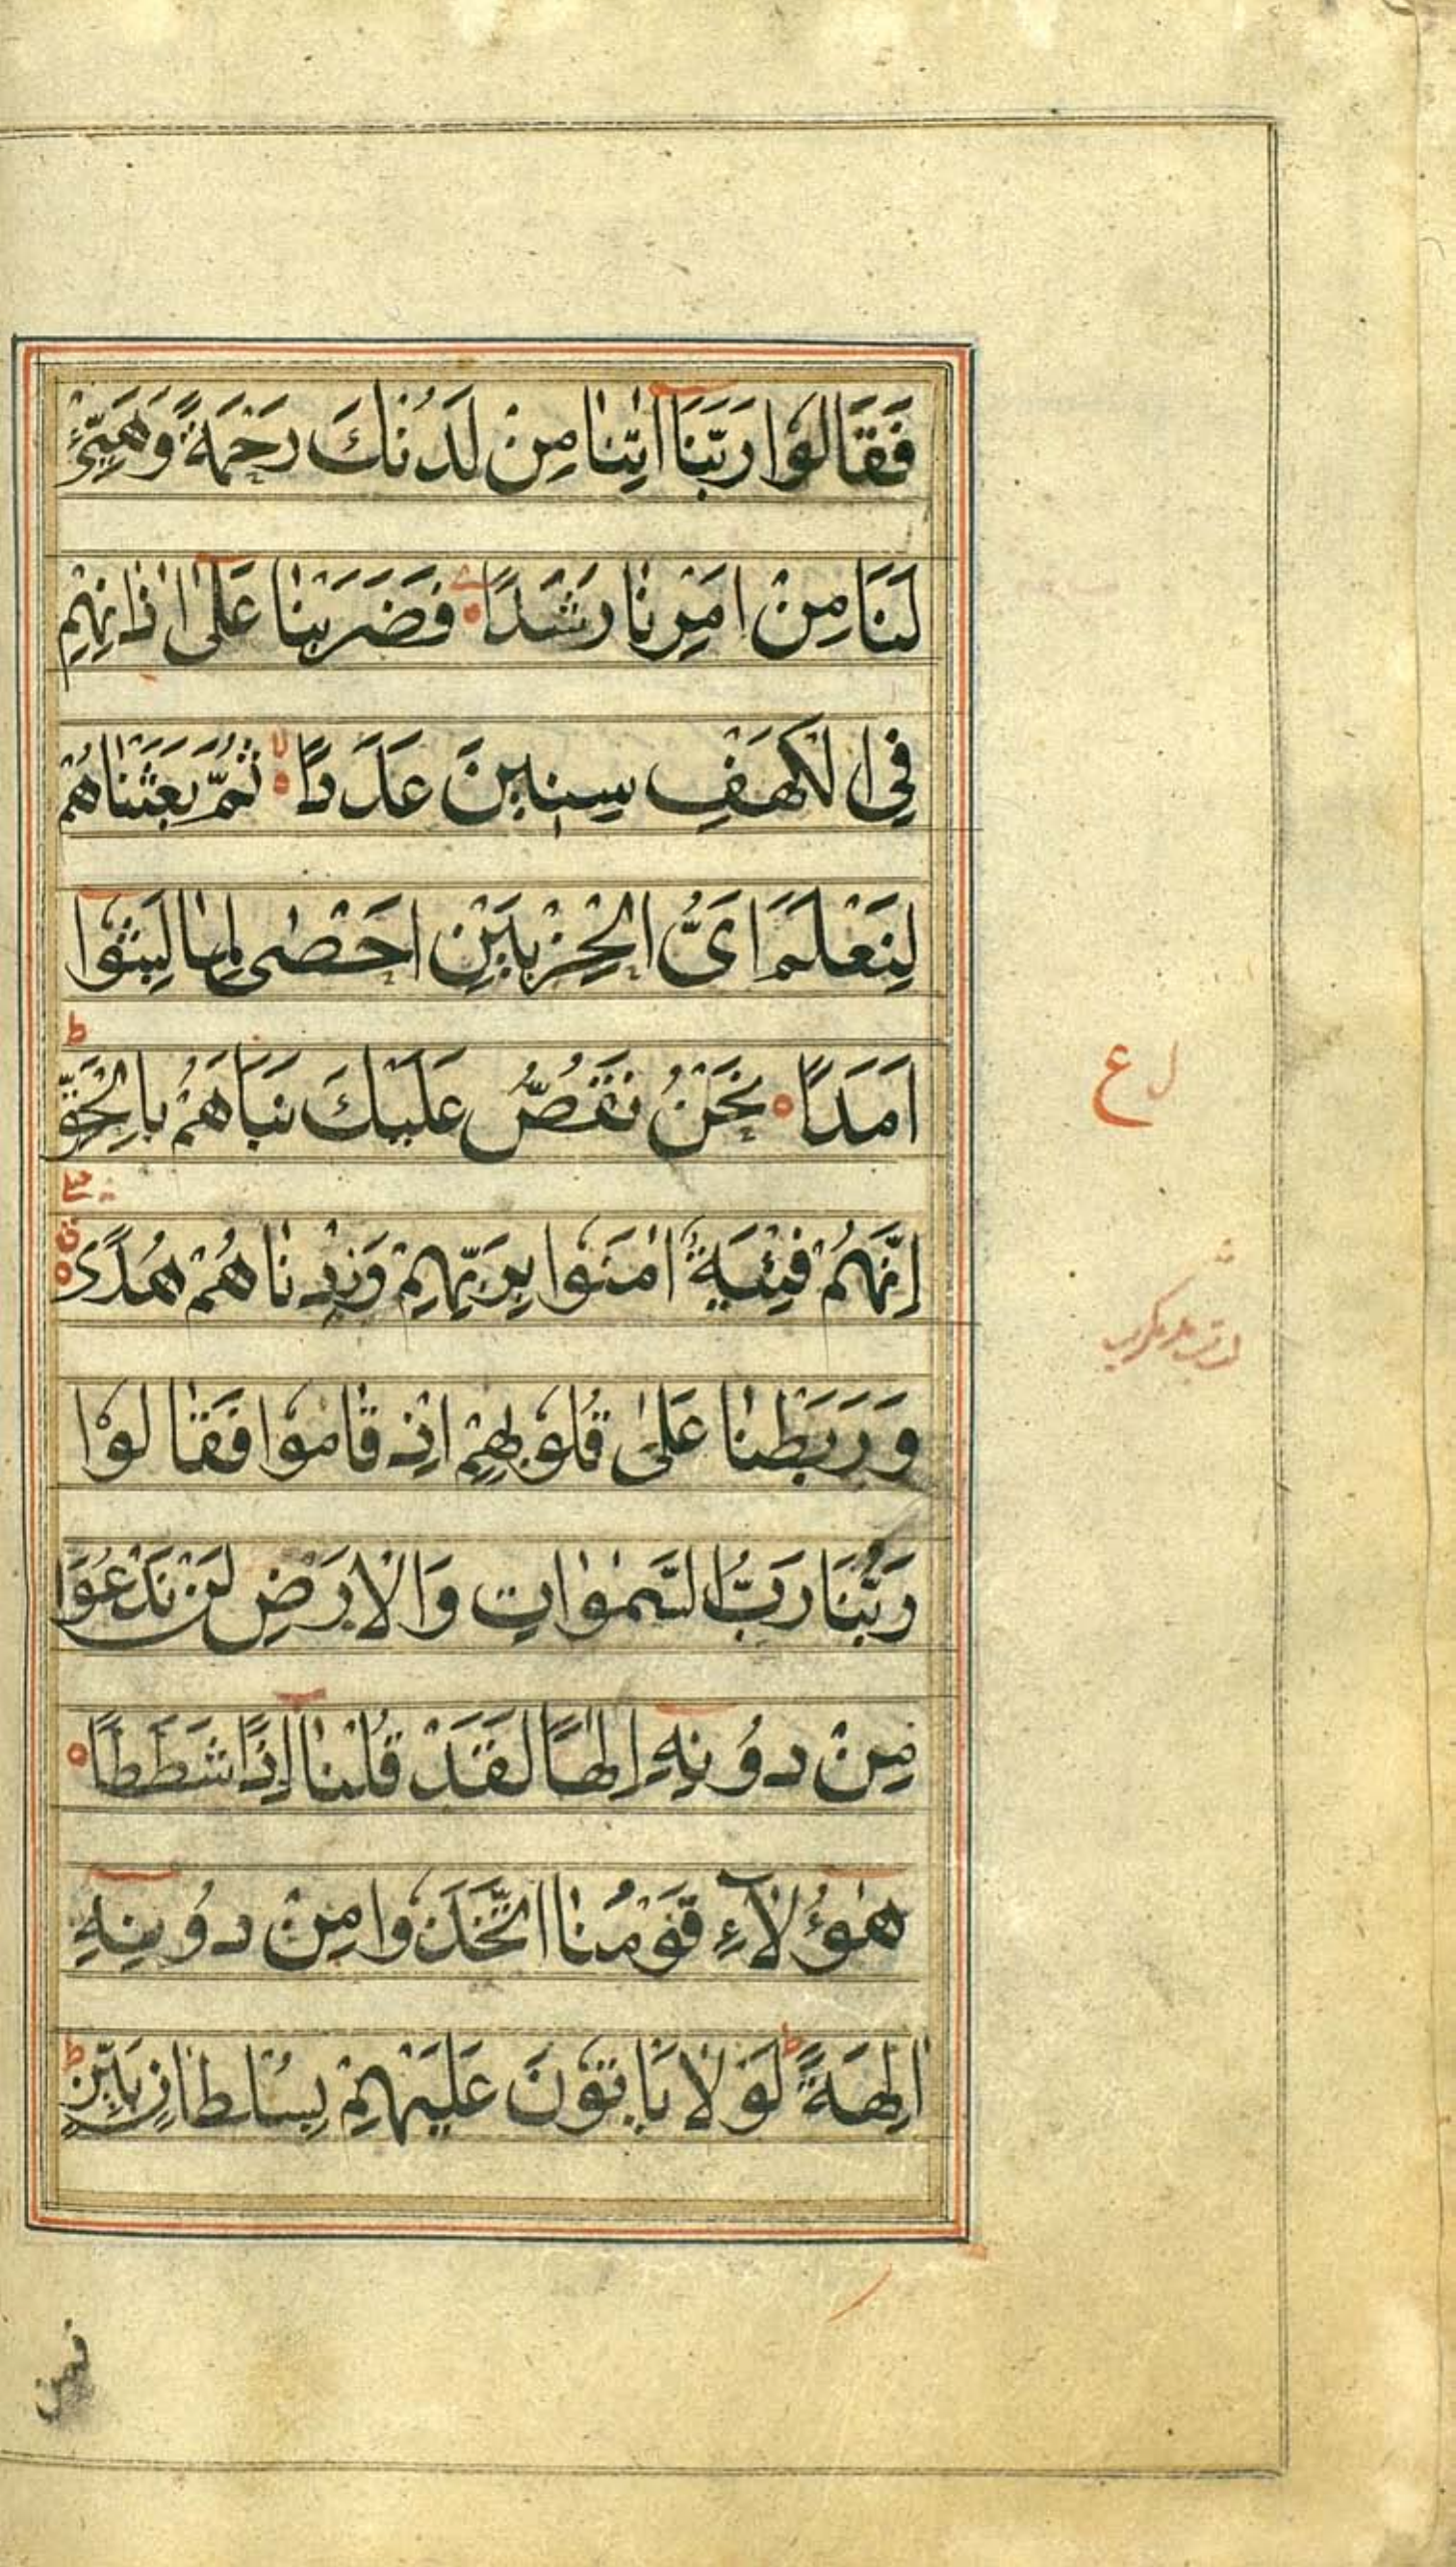 فَقَالُوا رَبَّنَا اٰتِنَا مِنْ لَدُنْكَ رَحْمَةً وَهَيِّئْ
لَنَا مِنْ اَمْرِنَا رَشَدًا فَضَرَبْنَا عَلٰى اٰذَانِهِمْ
فِي الْكَهْفِ سِنِينَ عَدَدًا لا ثُمَّ بَعَثْنَاهُمْ
لِنَعْلَمَ اَىُّ الْحِزْبَيْنِ اَحْصٰى لِمَا لَبِثُوا
اَمَدًا نَحْنُ نَقُصُّ عَلَيْكَ نَبَاَهُمْ بِالْحَقِّ ط
ع
اِنَّهُمْ فِتْيَةٌ اٰمَنُوا بِرَبِّهِمْ وَزِدْنَاهُمْ هُدًى
وَرَبَطْنَا عَلٰى قُلُوبِهِمْ اِذْ قَامُوا فَقَالُوا
رَبُّنَا رَبُّ السَّمٰوَاتِ وَالْاَرْضِ لَنْ نَدْعُوَا
مِنْ دُونِهِ اِلٰهًا لَقَدْ قُلْنَا اِذًا شَطَطًا
هٰؤُلَاۤءِ قَوْمُنَا اتَّخَذُوا مِنْ دُونِهِ
اٰلِهَةً ط لَوْلَا يَاْتُونَ عَلَيْهِمْ بِسُلْطَانٍ بَيِّنٍ ط
فمن